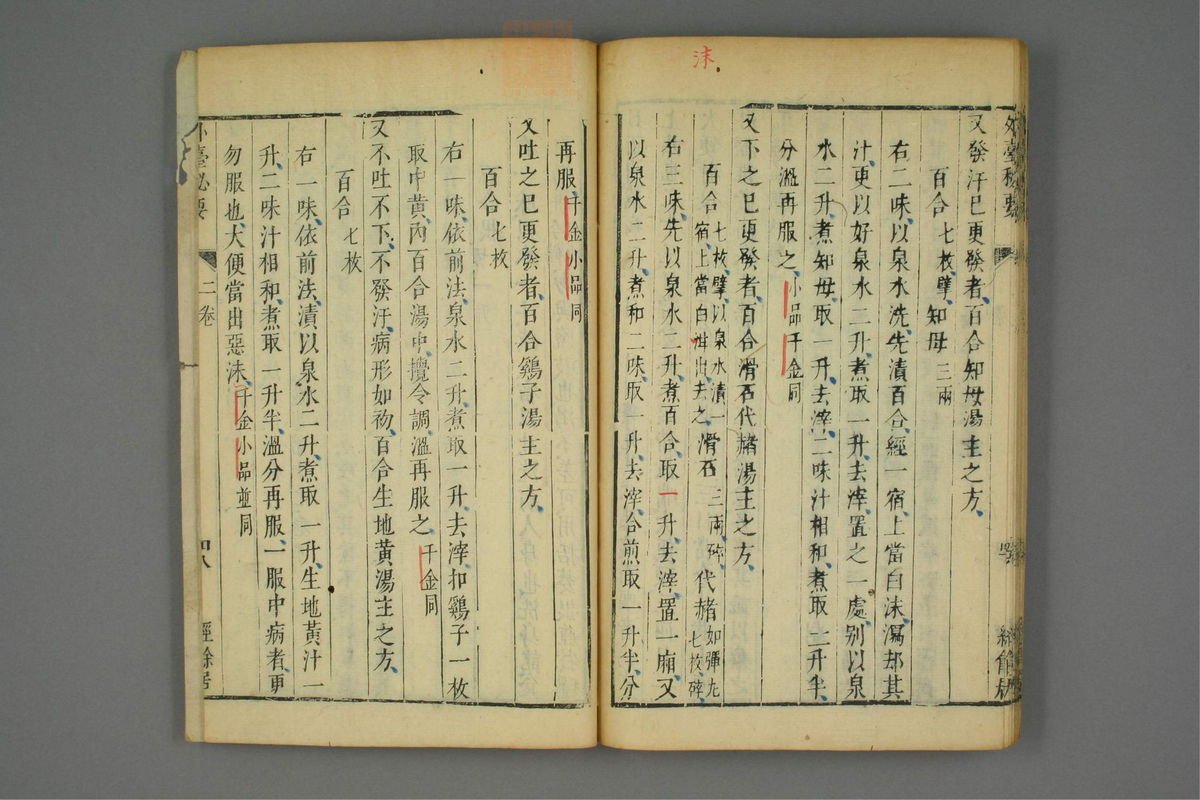 沫
外臺秘要
又發汗巳更發者百合知母湯主之方
百合七枚擘知母三兩
右二味以泉水洗先漬百合經一宿上當白沫瀉却其
汁更以好泉水二升煮取一升去滓置之一處别以泉
水二升煮知母取一升去滓二味汁相和煮取二升半
分溫再服之小品千金同
又下之巳更發者百合滑石代赭湯主之方
百合七枚擘以泉水漬一宿上當白沫出去之滑石三兩碎代赭如彈丸七枚碎
右三味先以泉水二升煮百合取一升去滓置一廂又
以泉水二升煮和二味取一升去滓合煎取一升半分
再服千金小品同
又吐之巳更發者百合鷄子湯主之方
百合七枚
右一味依前法泉水二升煮取一升去滓扣鷄子一枚
取中黄內百合湯中攪令調溫再服之千金同
又不吐不下不發汗病形如初百合生地黄湯主之方
百合七枚
右一味依前法漬以泉水二升煮取一升生地黃汁一
升二味汁相和煮取一升半溫分再服一服中病者更
勿服也大便當出惡沫千金小品並同
外臺秘要 二卷 四八 經餘居